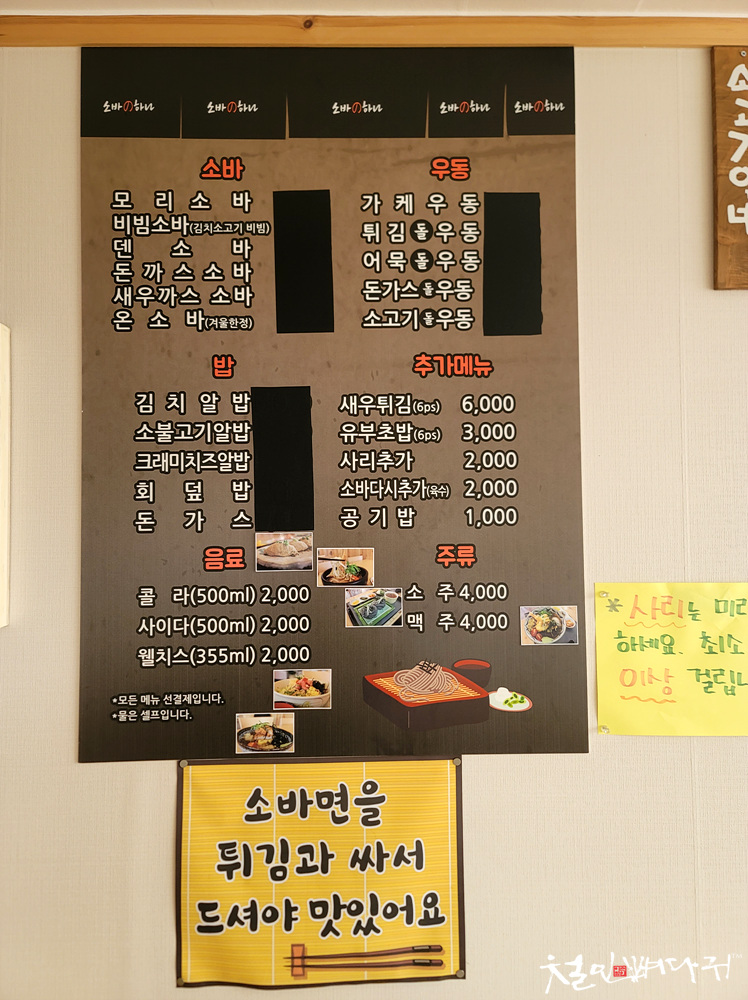 소바の하나 소바の하나 소바の하나 소바の하나 소바の하나
소바
모리소바
비빔소바(김치소고기 비빔)
덴소바
돈까스소바
새우까스 소바
온소바(겨울한정)
우동
가케우동
튀김돌우동
어묵돌우동
돈가스돌우동
소고기돌우동
밥
김치알밥
소불고기알밥
크래미치즈알밥
회덮밥
돈가스
추가메뉴
새우튀김(6ps) 6,000
유부초밥(6ps) 3,000
사리추가 2,000
소바다시추가(육수) 2,000
공기밥 1,000
음료
콜라(500ml) 2,000
사이다(500ml) 2,000
웰치스(355ml) 2,000
주류
소주 4,000
맥주 4,000
*모든 메뉴 선결제입니다.
*물은 셀프입니다.
소바면을
튀김과 싸서
드셔야 맛있어요
*사리는 미리
하세요. 최소
이상 걸립니
철민뼈다귀